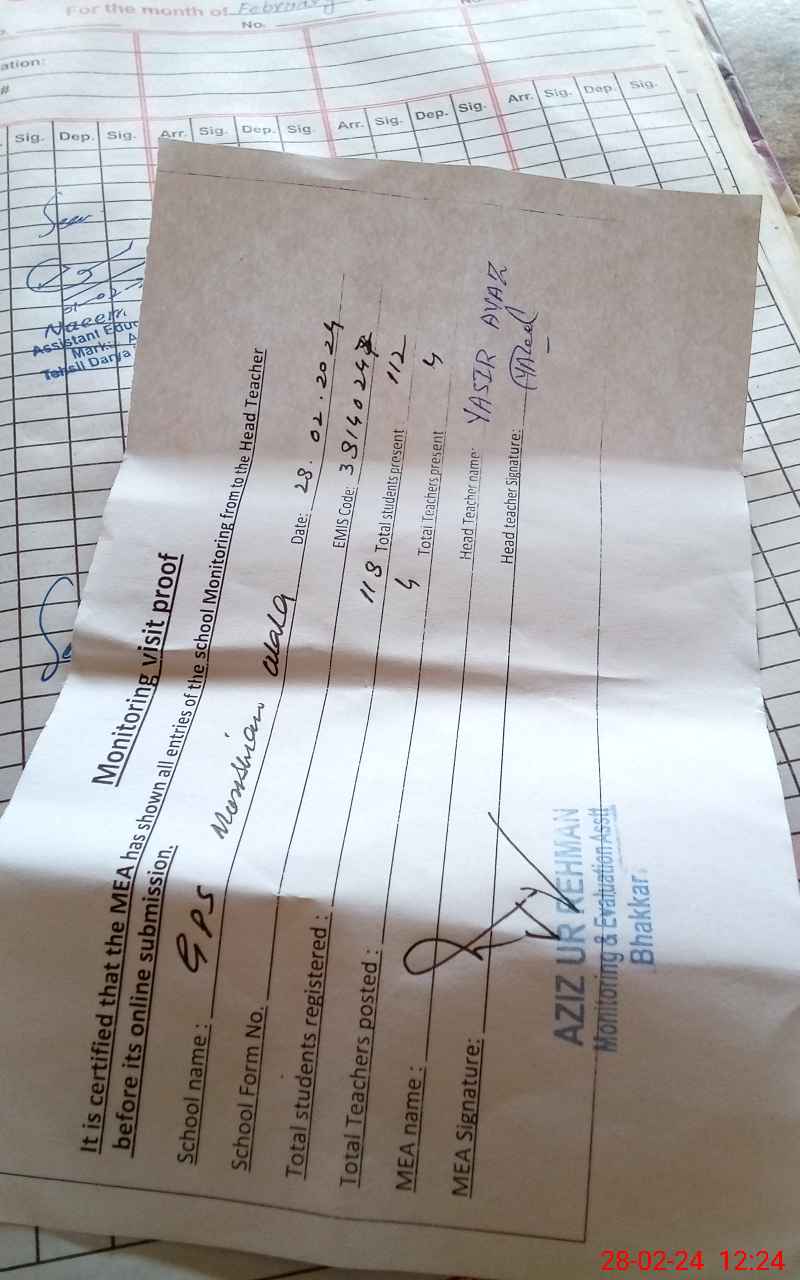 For the month of February
No.
ation:
#
Sig. Dep. Sig. Arr. Sig. Dep. Sig. Arr. Sig. Dep. Sig. Arr. Sig. Dep. Sig.
Naeem
Assistant Educ
Marki
Tehsil Darya
Monitoring visit proof
It is certified that the MEA has shown all entries of the school Monitoring from to the Head Teacher
before its online submission.
School name : GPS wala Date: 28.02.2024
School Form No. EMIS Code:
Total students registered : 113 Total students present 112
Total Teachers posted : 4 Total Teachers present 4
MEA name : Head Teacher name: YASIR AYAZ
MEA Signature: Head teacher Signature:
AZIZ UR REHMAN
Monitoring & Evaluation Asstt
Bhakkar
28-02-24 12:24